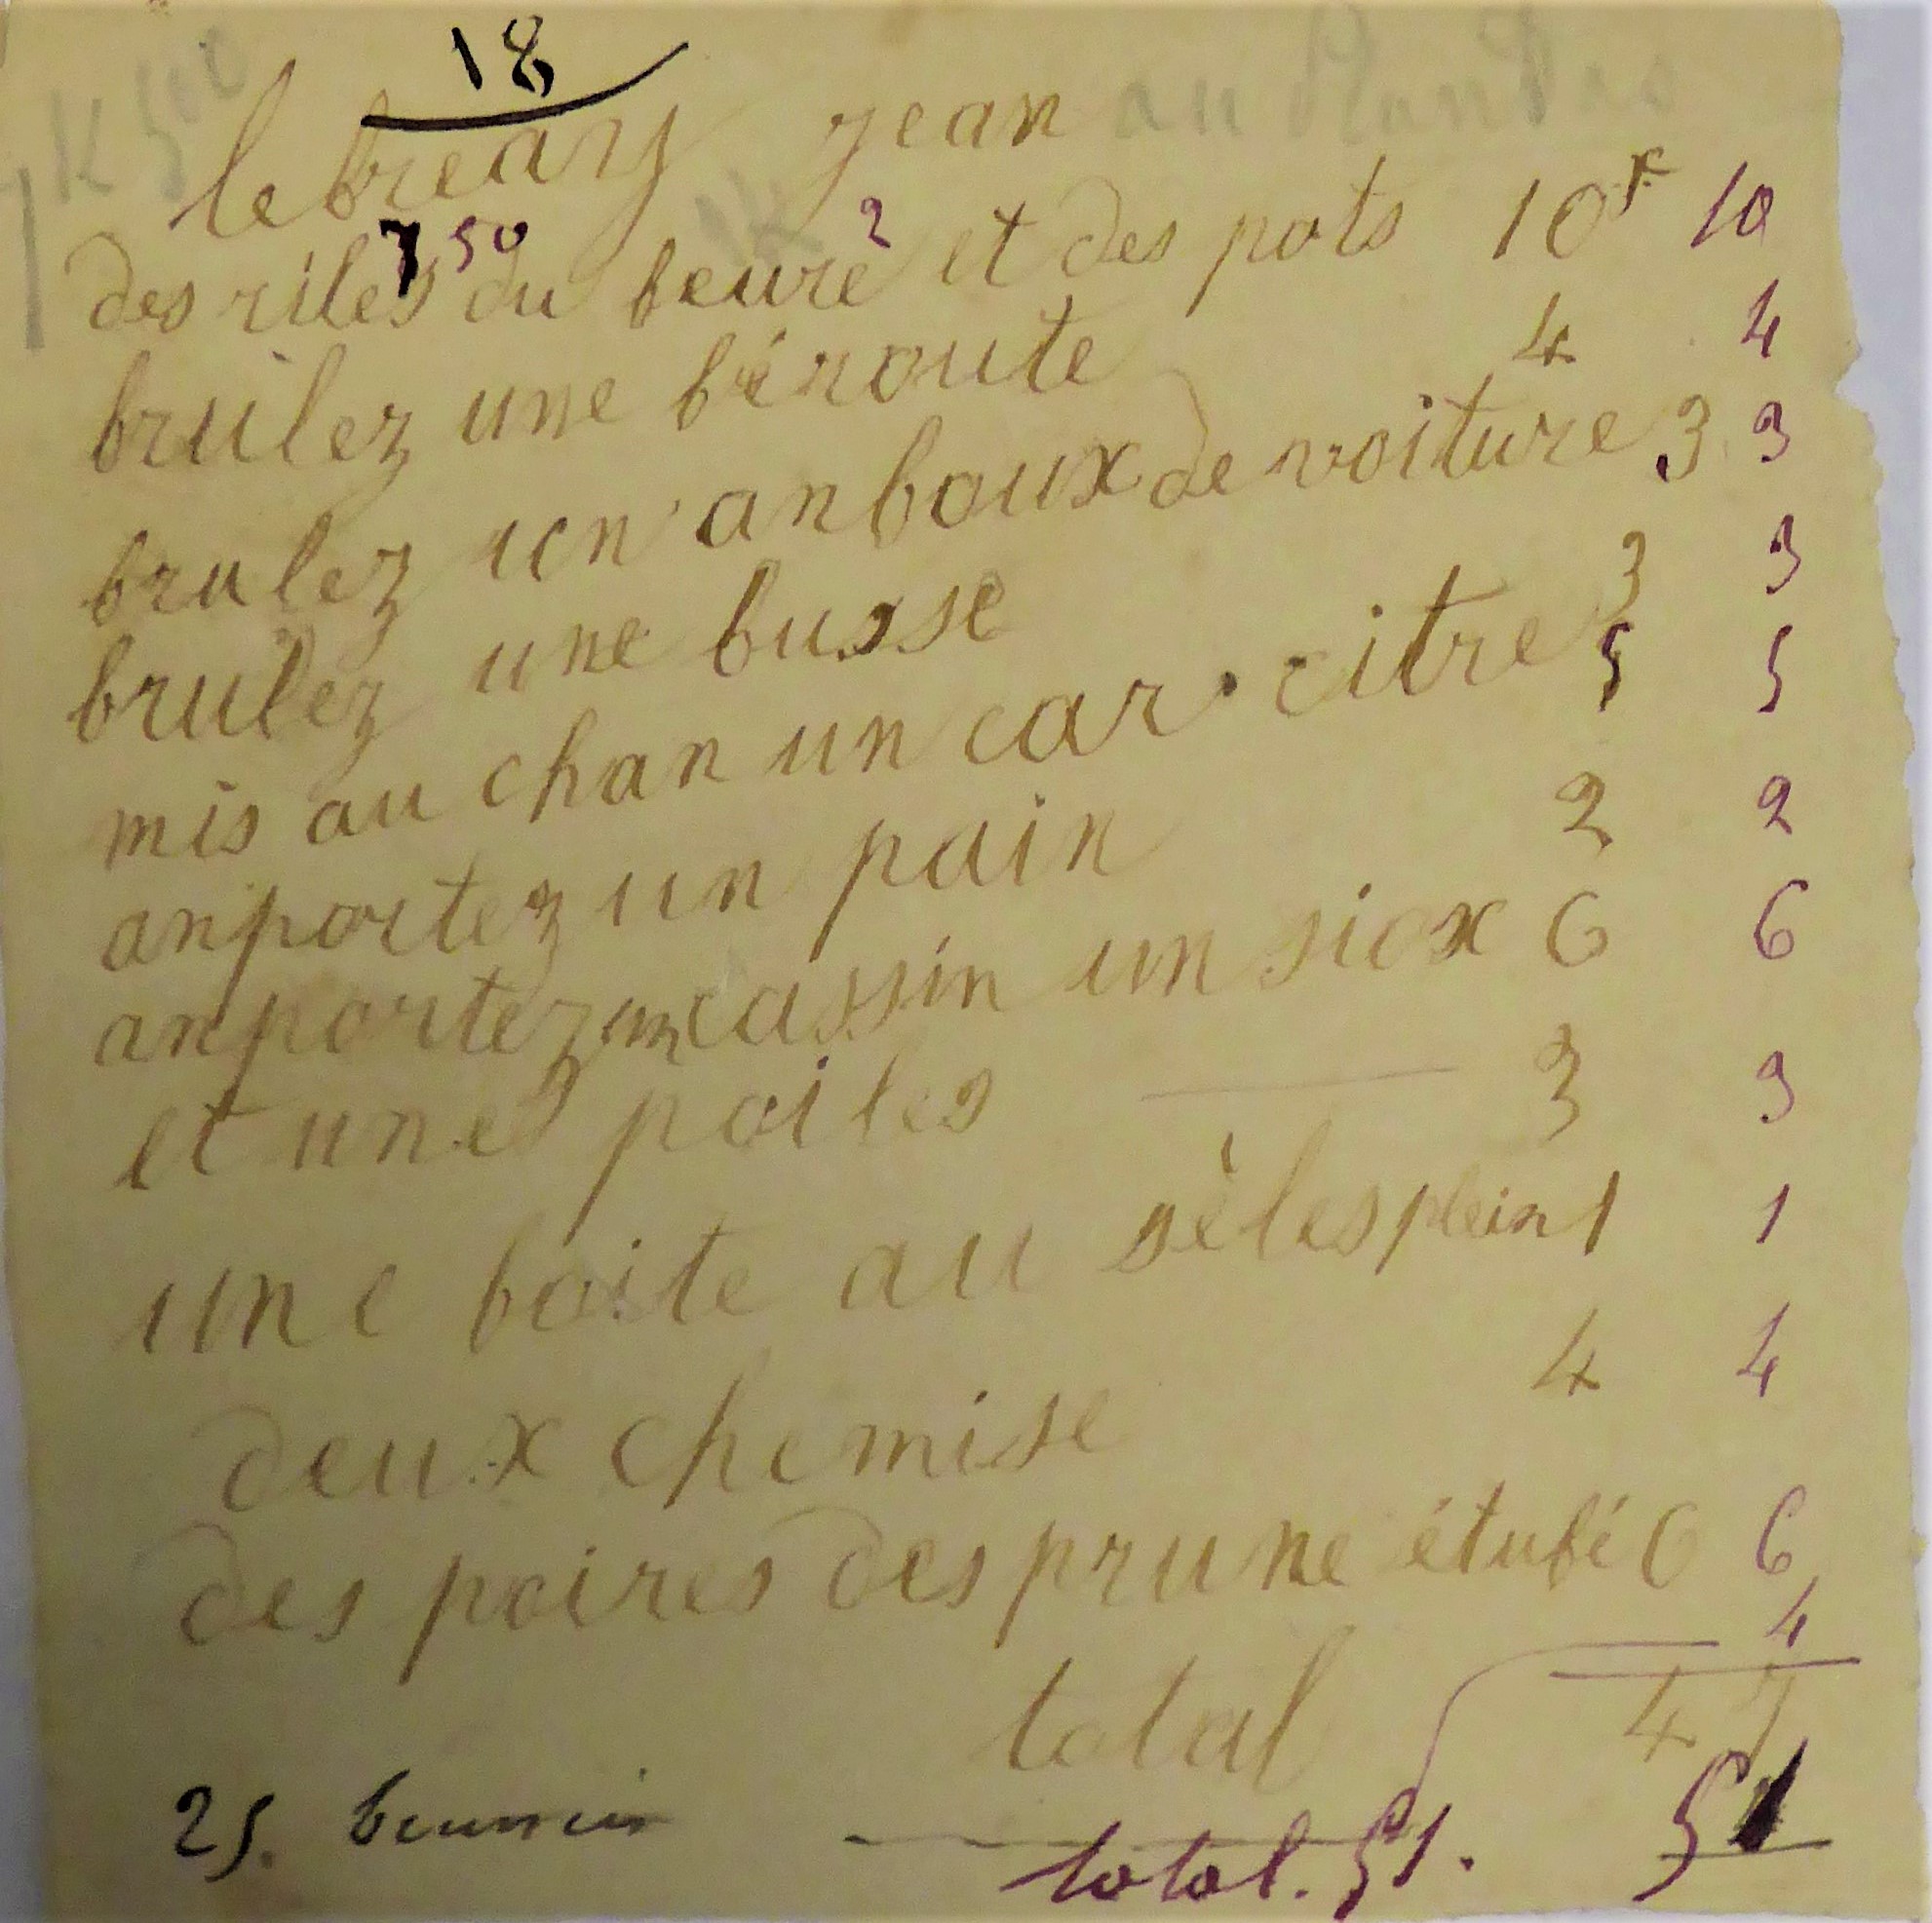 18
1K 500
lebreary jean au
7 50 2
des riles du beure et des pots 10f 10
brulez une béroute 4 4
brulez un anboux de voiture 3 3
brulez une busse 3 3
mis au chan un car citre 5 5
anportez un pain 2 2
anportez un cassin un siox 6 6
et une poiles 3 3
une boite au sèles plein 1 1
deux chemise 4 4
des poires des prune étubé 6 6
4
total 47
51
25.
total. 51.